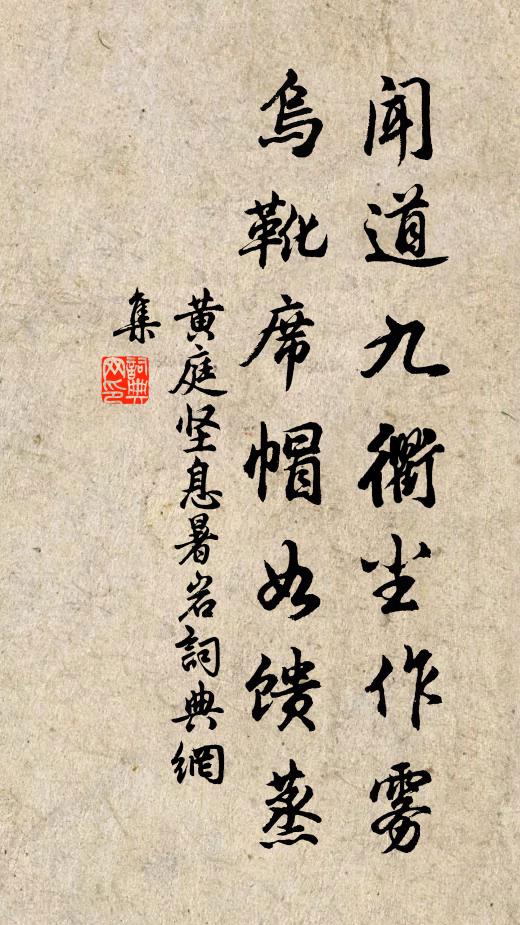 闻道九衢尘作雾
乌靴席帽如馈蒸
黄庭坚息暑岩詞典網
集
詞典
网印